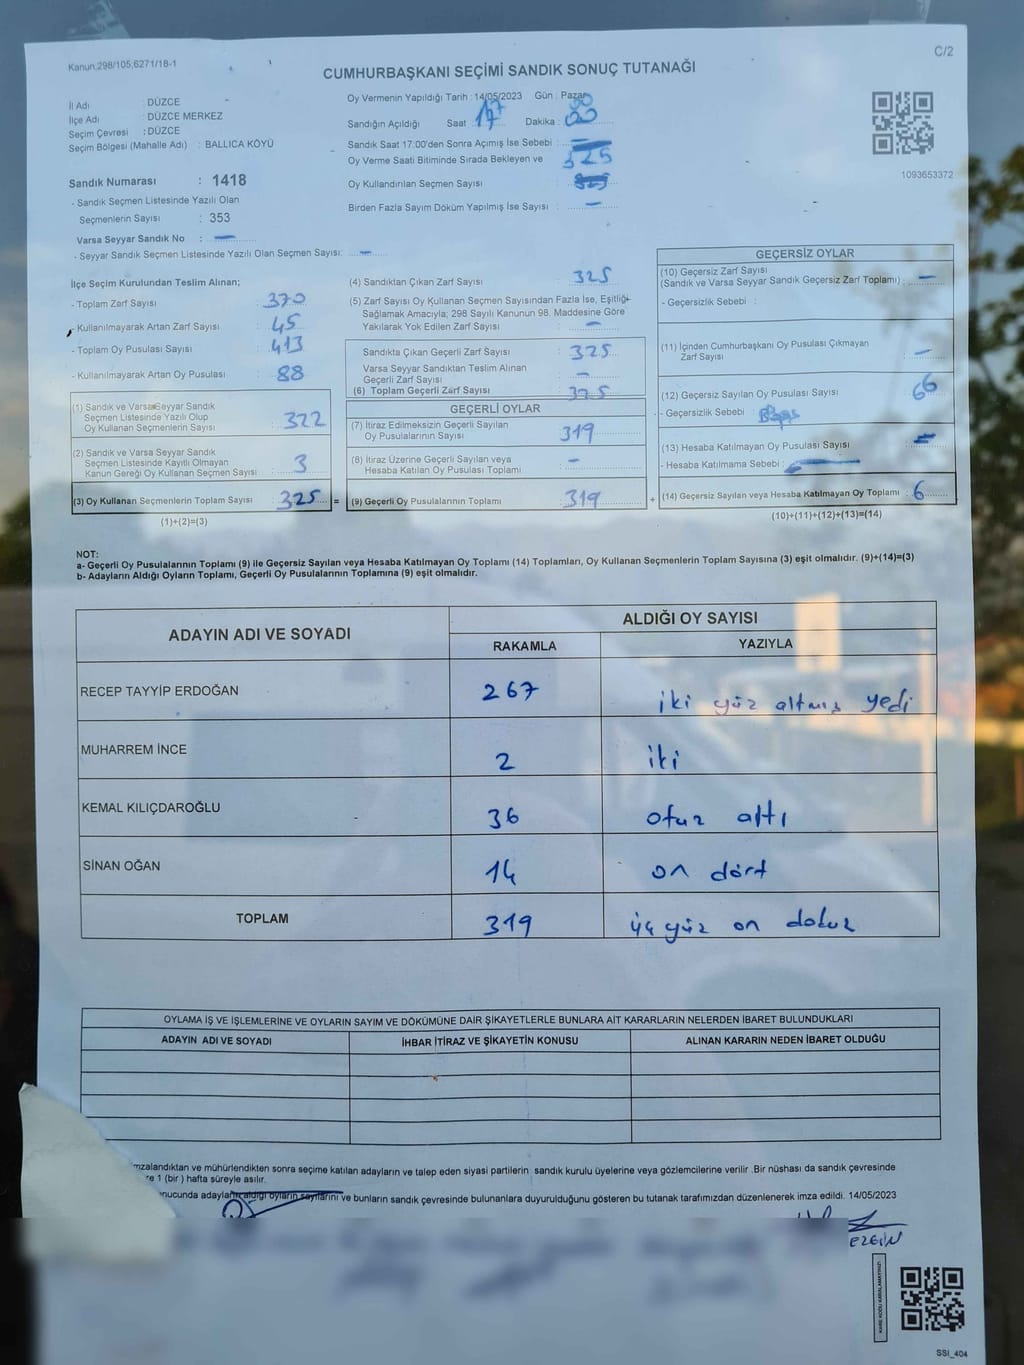 Kanun;298/105,6271/18-1
C/2
CUMHURBAŞKANI SEÇİMİ SANDIK SONUÇ TUTANAĞI
İl Adı : DÜZCE
İlçe Adı : DÜZCE MERKEZ
Seçim Çevresi : DÜZCE
Seçim Bölgesi (Mahalle Adı) : BALLICA KÖYÜ
Sandık Numarası : 1418
- Sandık Seçmen Listesinde Yazılı Olan
Seçmenlerin Sayısı : 353
Varsa Seyyar Sandık No : —
- Seyyar Sandık Seçmen Listesinde Yazılı Olan Seçmen Sayısı: —
Oy Vermenin Yapıldığı Tarih : 14/05/2023 Gün : Pazar
Sandığın Açıldığı Saat 17 Dakika : 00
Sandık Saat 17.00'den Sonra Açımış İse Sebebi :
Oy Verme Saati Bitiminde Sırada Bekleyen ve 325
Oy Kullandırılan Seçmen Sayısı
Birden Fazla Sayım Döküm Yapılmış İse Sayısı : —
1093653372
İlçe Seçim Kurulundan Teslim Alınan;
- Toplam Zarf Sayısı : 370
- Kullanılmayarak Artan Zarf Sayısı : 45
- Toplam Oy Pusulası Sayısı : 413
- Kullanılmayarak Artan Oy Pusulası : 88
(1) Sandık ve Varsa Seyyar Sandık
Seçmen Listesinde Yazılı Olup
Oy Kullanan Seçmenlerin Sayısı : 322
(2) Sandık ve Varsa Seyyar Sandık
Seçmen Listesinde Kayıtlı Olmayan
Kanun Gereği Oy Kullanan Seçmen Sayısı : 3
(3) Oy Kullanan Seçmenlerin Toplam Sayısı : 325 =
(1)+(2)=(3)
(4) Sandıktan Çıkan Zarf Sayısı : 325
(5) Zarf Sayısı Oy Kullanan Seçmen Sayısından Fazla İse, Eşitliği
Sağlamak Amacıyla; 298 Sayılı Kanunun 98. Maddesine Göre
Yakılarak Yok Edilen Zarf Sayısı : —
Sandıkta Çıkan Geçerli Zarf Sayısı : 325
Varsa Seyyar Sandıktan Teslim Alınan
Geçerli Zarf Sayısı : —
(6) Toplam Geçerli Zarf Sayısı : 325
GEÇERLİ OYLAR
(7) İtiraz Edilmeksizin Geçerli Sayılan
Oy Pusulalarının Sayısı : 319
(8) İtiraz Üzerine Geçerli Sayılan veya
Hesaba Katılan Oy Pusulası Toplamı : —
(9) Geçerli Oy Pusulalarının Toplamı : 319 +
GEÇERSİZ OYLAR
(10) Geçersiz Zarf Sayısı
(Sandık ve Varsa Seyyar Sandık Geçersiz Zarf Toplamı) : —
- Geçersizlik Sebebi :
(11) İçinden Cumhurbaşkanı Oy Pusulası Çıkmayan
Zarf Sayısı : —
(12) Geçersiz Sayılan Oy Pusulası Sayısı : 66
- Geçersizlik Sebebi :
(13) Hesaba Katılmayan Oy Pusulası Sayısı :
- Hesaba Katılmama Sebebi :
(14) Geçersiz Sayılan veya Hesaba Katılmayan Oy Toplamı : 6
(10)+(11)+(12)+(13)=(14)
NOT:
a- Geçerli Oy Pusulalarının Toplamı (9) ile Geçersiz Sayılan veya Hesaba Katılmayan Oy Toplamı (14) Toplamları, Oy Kullanan Seçmenlerin Toplam Sayısına (3) eşit olmalıdır. (9)+(14)=(3)
b- Adayların Aldığı Oyların Toplamı, Geçerli Oy Pusulalarının Toplamına (9) eşit olmalıdır.
ADAYIN ADI VE SOYADI ALDIĞI OY SAYISI
RAKAMLA YAZIYLA
RECEP TAYYİP ERDOĞAN 267 iki yüz altmış yedi
MUHARREM İNCE 2 iki
KEMAL KILIÇDAROĞLU 36 otuz altı
SİNAN OĞAN 14 on dört
TOPLAM 319 üç yüz on dokuz
OYLAMA İŞ VE İŞLEMLERİNE VE OYLARIN SAYIM VE DÖKÜMÜNE DAİR ŞİKAYETLERLE BUNLARA AİT KARARLARIN NELERDEN İBARET BULUNDUKLARI
ADAYIN ADI VE SOYADI İHBAR İTİRAZ VE ŞİKAYETİN KONUSU ALINAN KARARIN NEDEN İBARET OLDUĞU
mzalandıktan ve mühürlendikten sonra seçime katılan adayların ve talep eden siyasi partilerin sandık kurulu üyelerine veya gözlemcilerine verilir .Bir nüshası da sandık çevresinde
re 1 (bir ) hafta süreyle asılır.
nucunda adayların aldığı oyların sayılarını ve bunların sandık çevresinde bulunanlara duyurulduğunu gösteren bu tutanak tarafımızdan düzenlenerek imza edildi. 14/05/2023
KARE KODU KARALAMAYINIZ!
SSI_404